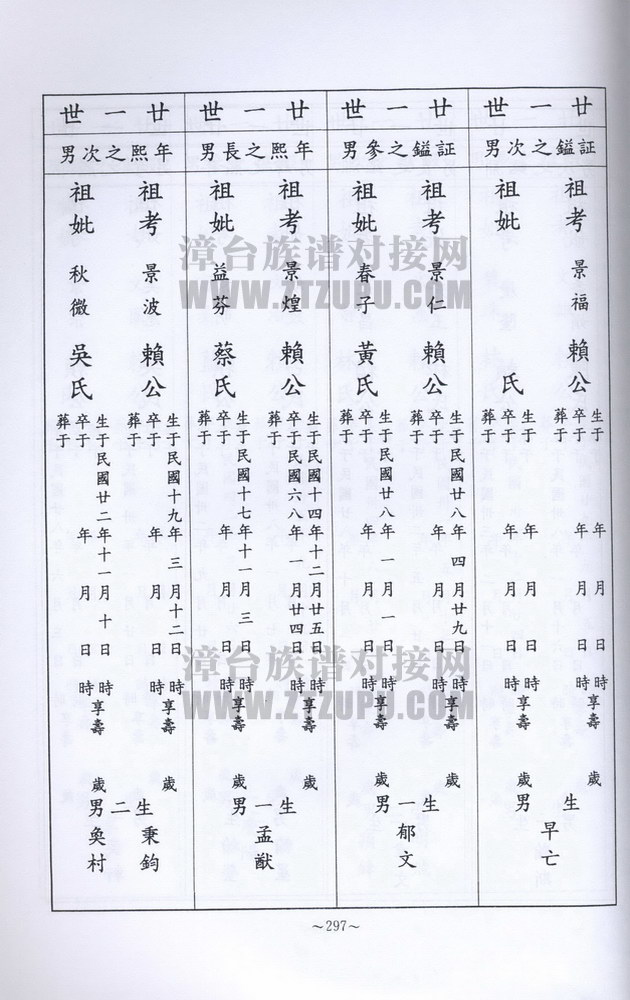 廿一世
証鎰之次男
祖考 景福 賴公
生于 年 月 日 時
卒于 年 月 日 時享壽 歲
葬于
祖妣 氏
生于 年 月 日 時
卒于 年 月 日 時享壽 歲
葬于
生 男
早亡
廿一世
証鎰之參男
祖考 景仁 賴公
生于民國廿八年 四月廿九日 時
卒于 年 月 日 時享壽 歲
葬于
祖妣 春子 黃氏
生于民國廿八年 一月 一日 時
卒于 年 月 日 時享壽 歲
葬于
生一男
郁文
廿一世
年熙之長男
祖考 景煌 賴公
生于民國十四年十二月廿五日 時
卒于民國六八年 一月廿四日 時享壽 歲
葬于
祖妣 益芬 蔡氏
生于民國十七年十一月 三日 時
卒于 年 月 日 時享壽 歲
葬于
生一男
孟猷
廿一世
年熙之次男
祖考 景波 賴公
生于民國十九年 三月十二日 時
卒于 年 月 日 時享壽 歲
葬于
祖妣 秋微 吳氏
生于民國廿二年十一月 十日 時
卒于 年 月 日 時享壽 歲
葬于
生二男
秉鈞
奐村
～297～
漳台族谱对接网
WWW.ZTZUPU.COM
漳台族谱对接网
WWW.ZTZUPU.COM